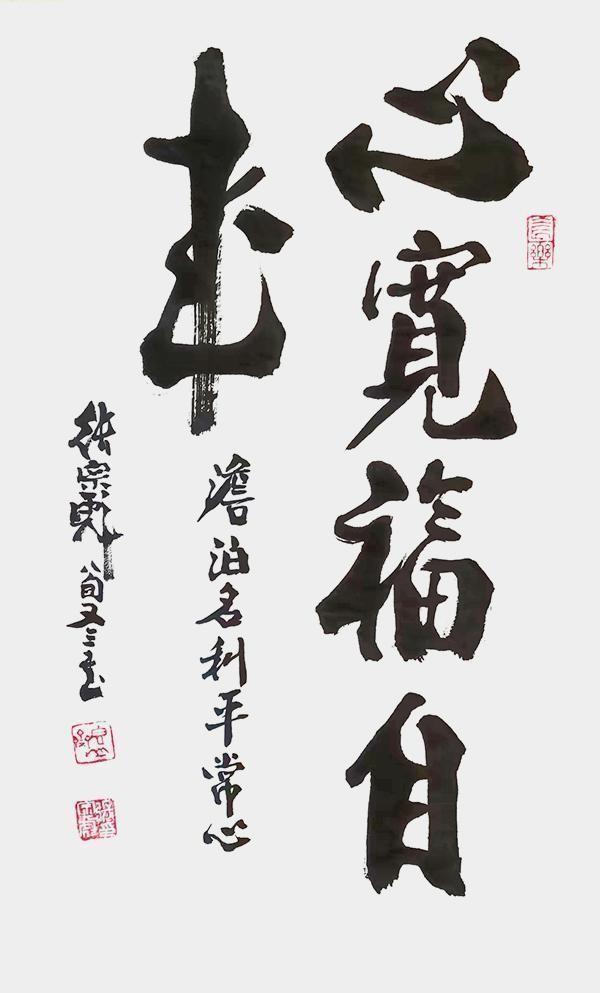 心寬福自
来
澹泊名利平常心
張宗 八旬又三書
長樂